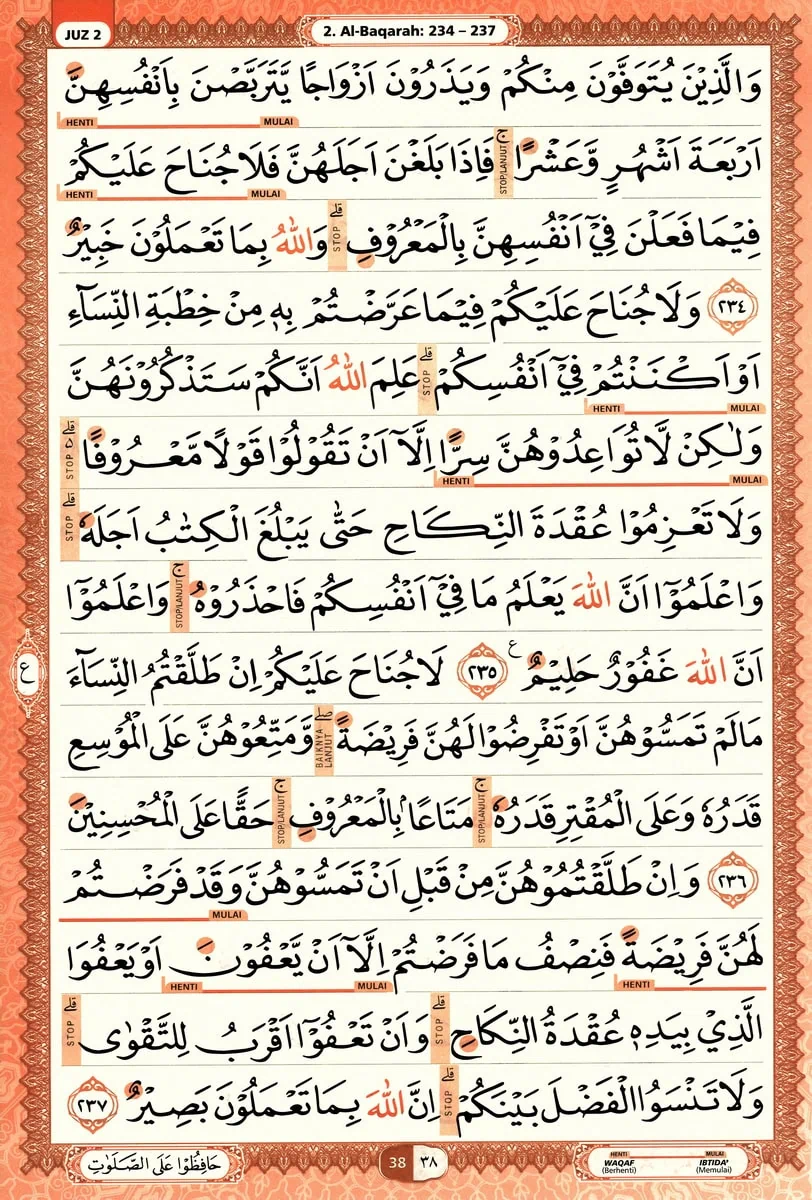 JUZ 2
2. Al-Baqarah: 234 – 237
وَالَّذِيْنَ يُتَوَفَّوْنَ مِنْكُمْ وَيَذَرُوْنَ اَزْوَاجًا يَّتَرَبَّصْنَ بِاَنْفُسِهِنَّ
HENTI MULAI
اَرْبَعَةَ اَشْهُرٍ وَّعَشْرًا ۚ فَاِذَا بَلَغْنَ اَجَلَهُنَّ فَلَا جُنَاحَ عَلَيْكُمْ
STOP/LANJUT
HENTI MULAI
فِيْمَا فَعَلْنَ فِيْٓ اَنْفُسِهِنَّ بِالْمَعْرُوْفِۗ وَاللّٰهُ بِمَا تَعْمَلُوْنَ خَبِيْرٌ
STOP
٢٣٤ وَلَا جُنَاحَ عَلَيْكُمْ فِيْمَا عَرَّضْتُمْ بِهٖ مِنْ خِطْبَةِ النِّسَاۤءِ
اَوْ اَكْنَنْتُمْ فِيْٓ اَنْفُسِكُمْ ۗ عَلِمَ اللّٰهُ اَنَّكُمْ سَتَذْكُرُوْنَهُنَّ
STOP
HENTI MULAI
وَلٰكِنْ لَّا تُوَاعِدُوْهُنَّ سِرًّا اِلَّآ اَنْ تَقُوْلُوْا قَوْلًا مَّعْرُوْفًا ەۗ
STOP
HENTI MULAI
وَلَا تَعْزِمُوْا عُقْدَةَ النِّكَاحِ حَتّٰى يَبْلُغَ الْكِتٰبُ اَجَلَهٗ ۗ
STOP
وَاعْلَمُوْٓا اَنَّ اللّٰهَ يَعْلَمُ مَا فِيْٓ اَنْفُسِكُمْ فَاحْذَرُوْهُ ۚ وَاعْلَمُوْٓا
STOP/LANJUT
اَنَّ اللّٰهَ غَفُوْرٌ حَلِيْمٌ ࣖ ٢٣٥ لَا جُنَاحَ عَلَيْكُمْ اِنْ طَلَّقْتُمُ النِّسَاۤءَ
ع
مَا لَمْ تَمَسُّوْهُنَّ اَوْ تَفْرِضُوْا لَهُنَّ فَرِيْضَةً ۖ وَّمَتِّعُوْهُنَّ عَلَى الْمُوْسِعِ
BAIKNYA LANJUT
قَدَرُهٗ وَعَلَى الْمُقْتِرِ قَدَرُهٗ ۚ مَتَاعًا ۢبِالْمَعْرُوْفِۚ حَقًّا عَلَى الْمُحْسِنِيْنَ
STOP/LANJUT STOP/LANJUT
٢٣٦ وَاِنْ طَلَّقْتُمُوْهُنَّ مِنْ قَبْلِ اَنْ تَمَسُّوْهُنَّ وَقَدْ فَرَضْتُمْ
MULAI
لَهُنَّ فَرِيْضَةً فَنِصْفُ مَا فَرَضْتُمْ اِلَّآ اَنْ يَّعْفُوْنَ اَوْ يَعْفُوَا
HENTI MULAI HENTI
الَّذِيْ بِيَدِهٖ عُقْدَةُ النِّكَاحِۗ وَاَنْ تَعْفُوْٓا اَقْرَبُ لِلتَّقْوٰىۗ
STOP STOP
وَلَا تَنْسَوُا الْفَضْلَ بَيْنَكُمْ ۗ اِنَّ اللّٰهَ بِمَا تَعْمَلُوْنَ بَصِيْرٌ ٢٣٧
STOP
حَافِظُوْا عَلَى الصَّلَوٰتِ
38 ٣٨
HENTI MULAI
WAQAF IBTIDA'
(Berhenti) (Memulai)